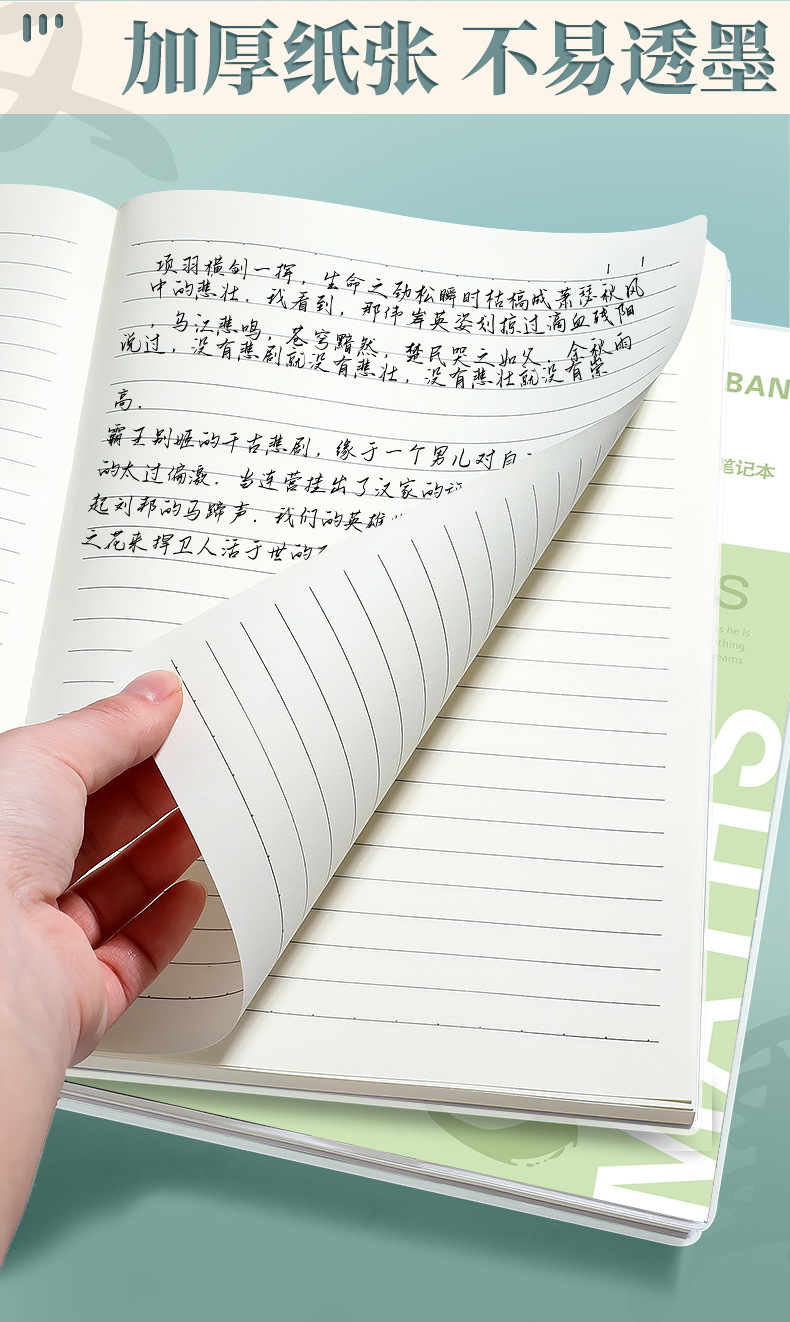 加厚纸张 不易透墨
项羽横剑一挥，生命之劲松瞬时枯槁成萧瑟秋风
中的悲壮．我看到，那伟岸英姿划掠过滴血残阳
，乌江悲鸣，苍穹黯然，楚民哭之如父．金秋雨
说过，没有悲剧就没有悲壮，没有悲壮就没有崇
高．
霸王别姬的千古悲剧，缘于一个男儿对自
的太过偏激．当连营挂出了汉家的
起刘邦的马蹄声．我们的英雄
之花来捍卫人活于世的
BAN
笔记本
S
s he is
thing.
eams.